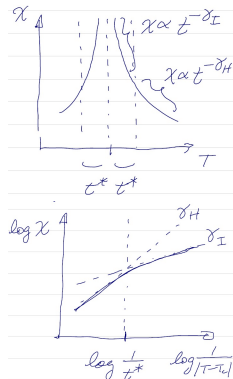 χ
χ ∝ t^{-γ_I}
χ ∝ t^{-γ_H}
T
t* t*
log χ
γ_H
γ_I
log 1/t*
log 1/|T-T_c|